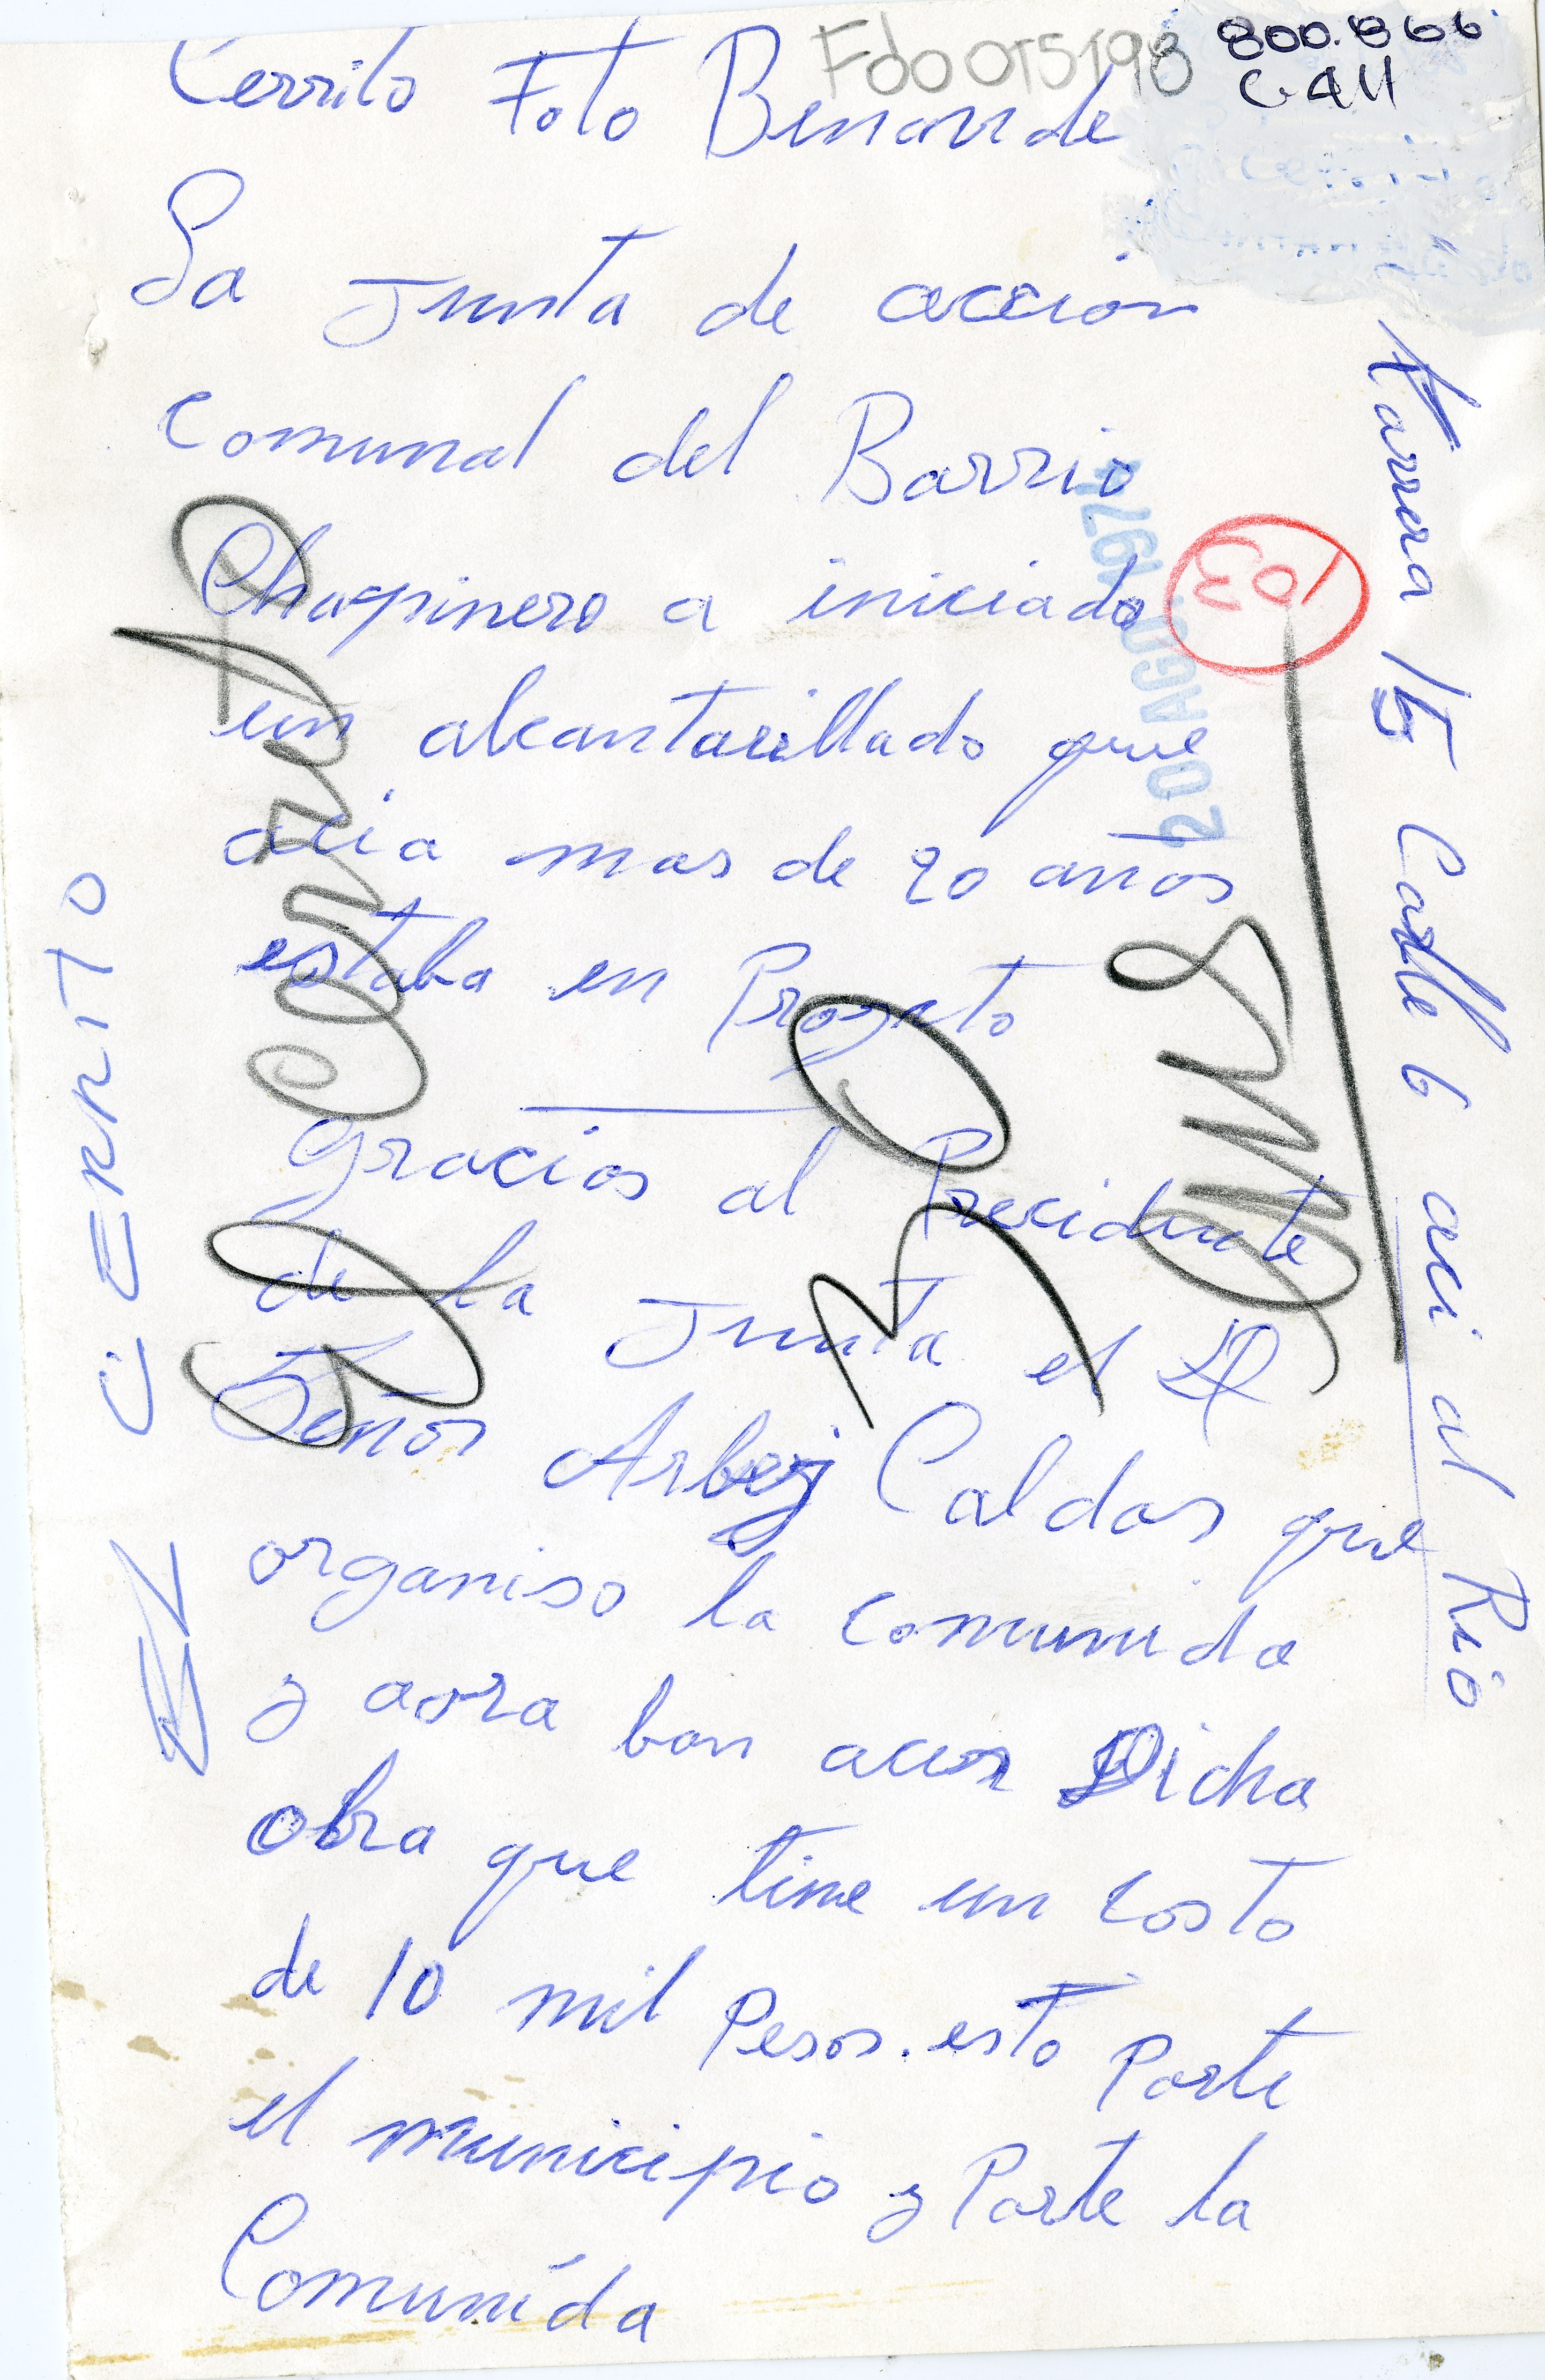 Fdo 015198
800.866
C411
Cerrito Foto Benavide
La Junta de accion
Comunal del Barrio
Chapinero a iniciado
un alcantarillado que
acia mas de 20 años
estaba en Proyeto
gracias al Precidente
de la Junta el
Señor Arbey Caldas que
organiso la comunida
y aora ban acer Dicha
obra que tine un costo
de 10 mil Pesos. esto Parte
el municipio y Parte la
Comunida
Karrera 15 Calle 6 aci al Rio
20 AGO. 1974
103
CERRITO